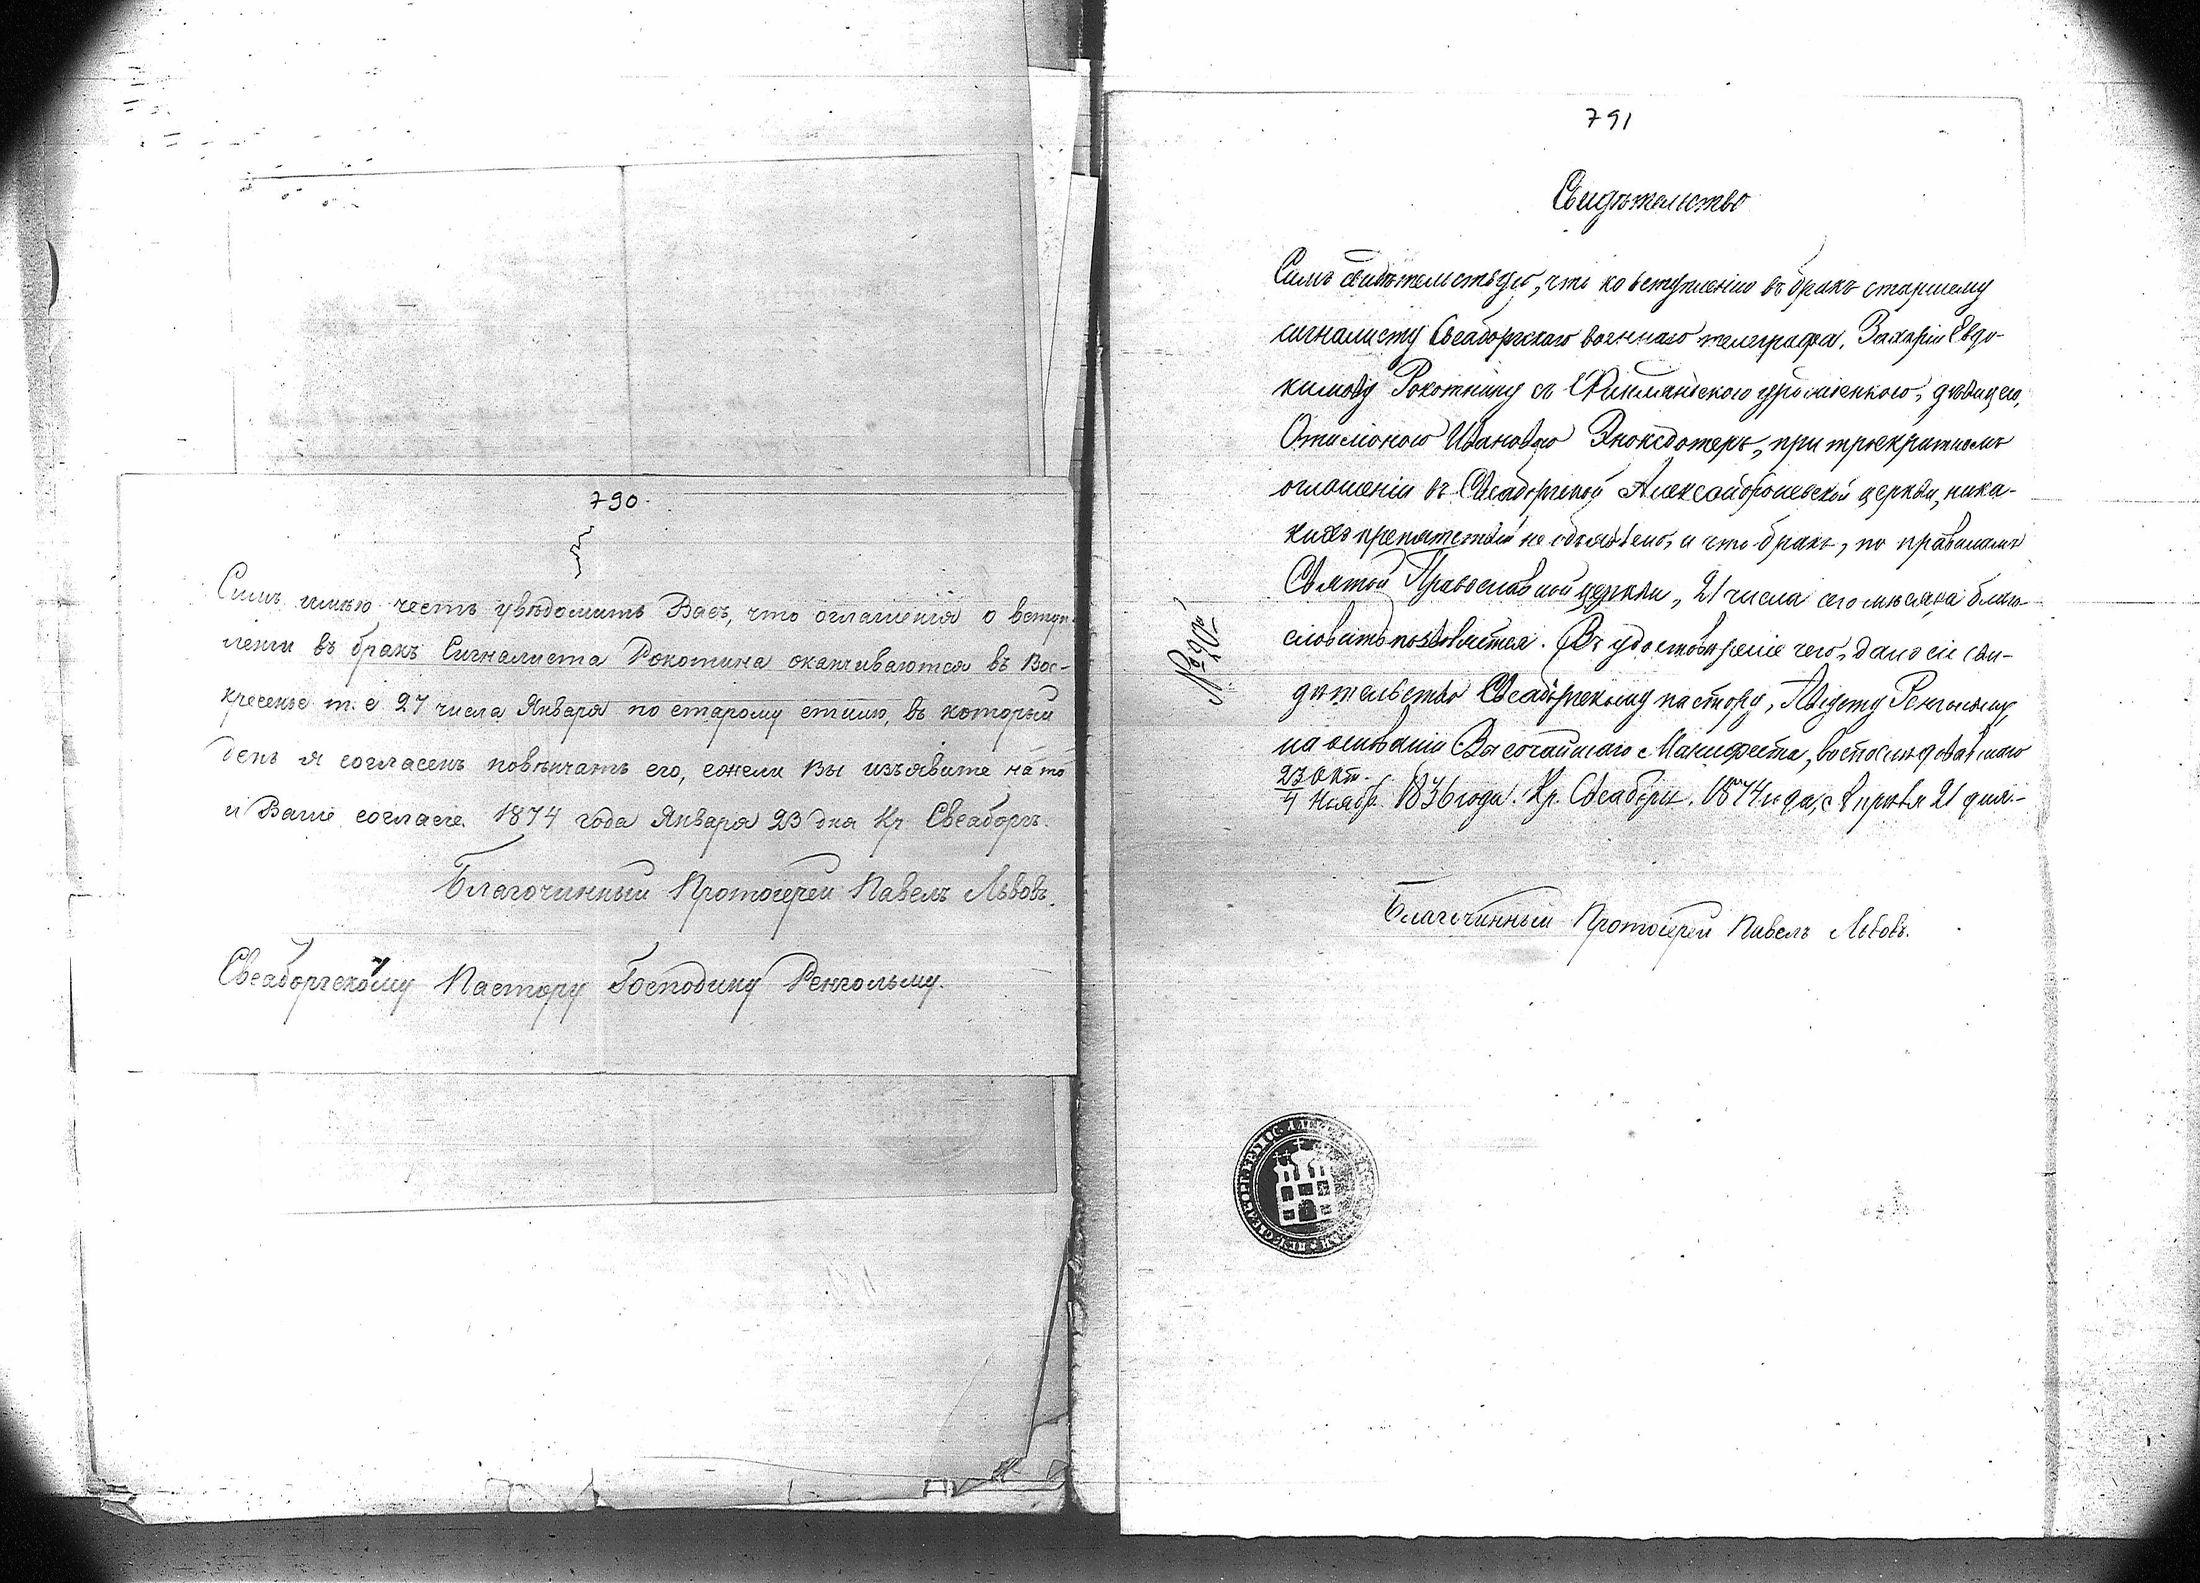 790.
Симъ имѣю честь увѣдомить Васъ, что оглашенія о вступ-
леніи въ бракъ Сигналиста Рокотина оканчиваются въ Вос-
кресенье т. е 27 числа Января по старому стилю, въ который
день я согласенъ повѣнчать его, ежели Вы изъявите на то
и Ваше согласіе. 1874 года Января 23 дня Кр. Свеаборгъ.
Благочинный Протоіерей Павелъ Львовъ.
Свеаборгскому Пастору Господину Ренгольму.
791
Свидѣтельство
Симъ свидѣтельствую, что ко вступленію въ бракъ старшему
сигналисту Свеаборгскаго военнаго телеграфа, Захарію Евдо-
кимову Рокотину съ Финляндскою уроженкою, дѣвицею,
Ивановою при троекратномъ
оглашеніи въ Свеаборгской церкви, ника-
кихъ препятствій не объявлено, и что бракъ, по правиламъ
Святой Православной церкви, 21 числа сего мѣсяца благо-
словить позволяется. Въ удостовѣреніе чего, дано сіе сви-
дѣтельство Свеаборгскому пастору, Ренгольму,
на основаніи Высочайшаго Манифеста, воспослѣдовавшаго
23 Окт.
4 Ноябр. 1836 года. Кр. Свеаборгъ. 1874 года, 21 дня.
№ 20й
Благочинный Протоіерей Павелъ Львовъ.